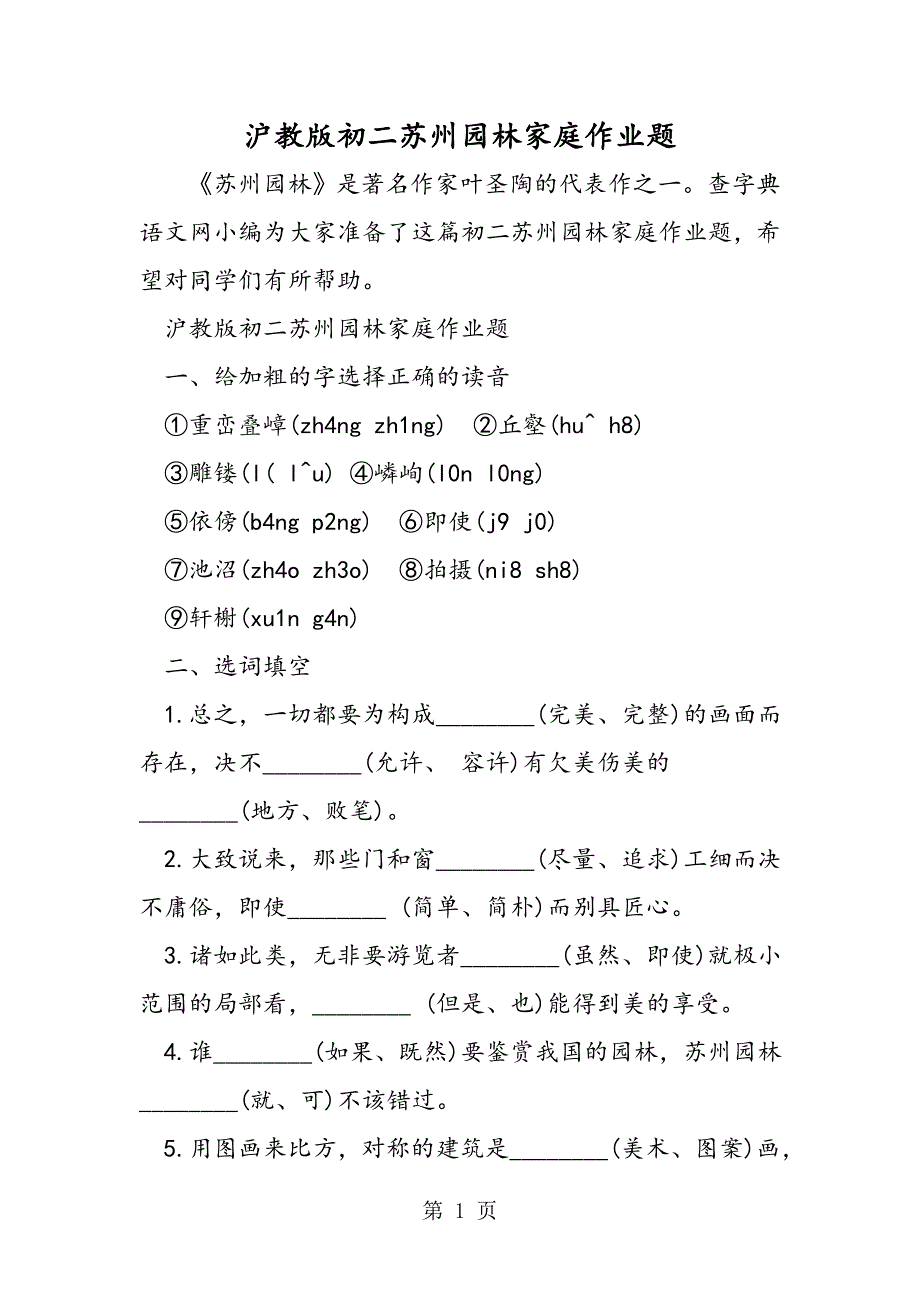 沪教版初二苏州园林家庭作业题
《苏州园林》是著名作家叶圣陶的代表作之一。查字典
语文网小编为大家准备了这篇初二苏州园林家庭作业题，希
望对同学们有所帮助。
沪教版初二苏州园林家庭作业题
一、给加粗的字选择正确的读音
①重峦叠嶂(zh4ng zh1ng) ②丘壑(hu^ h8)
③雕镂(l( l^u) ④嶙峋(l0n l0ng)
⑤依傍(b4ng p2ng) ⑥即使(j9 j0)
⑦池沼(zh4o zh3o) ⑧拍摄(ni8 sh8)
⑨轩榭(xu1n g4n)
二、选词填空
1.总之，一切都要为构成________(完美、完整)的画面而
存在，决不________(允许、 容许)有欠美伤美的
________(地方、败笔)。
2.大致说来，那些门和窗________(尽量、追求)工细而决
不庸俗，即使________ (简单、简朴)而别具匠心。
3.诸如此类，无非要游览者________(虽然、即使)就极小
范围的局部看，________ (但是、也)能得到美的享受。
4.谁________(如果、既然)要鉴赏我国的园林，苏州园林
________(就、可)不该错过。
5.用图画来比方，对称的建筑是________(美术、图案)画，
第 1 页